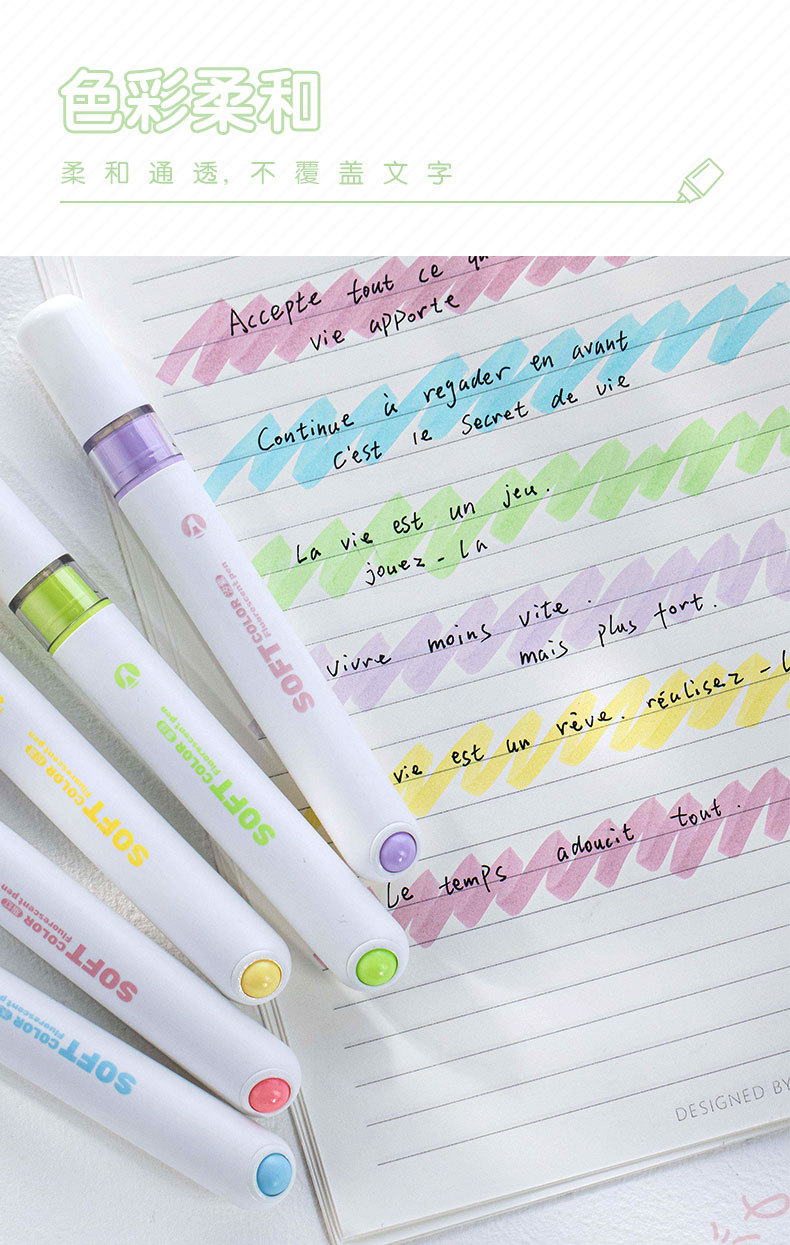 色彩柔和
柔和通透,不覆盖文字
Accepte tout ce
vie apporte
Continue à regader en avant
c'est le Secret de vie
La vie est un jeu.
jouez-La
vivre moins vite.
mais plus fort.
vie est un rêve. réulisez-L
Le temps adoucit tout.
SOFT COLOR
Fluorescent pen
SOFT COLOR
Fluorescent pen
SOFT COLOR
Fluorescent pen
SOFT COLOR
Fluorescent pen
SOFT COLOR
Fluorescent
DESIGNED BY